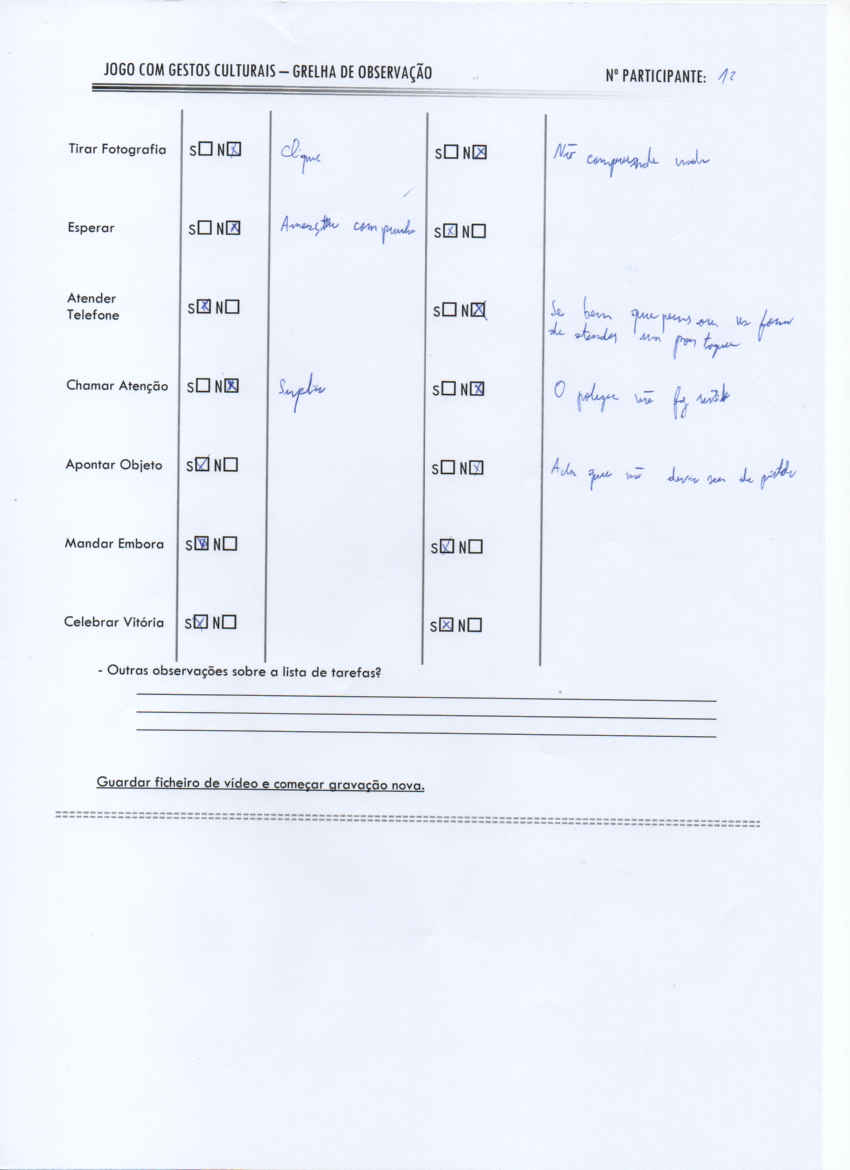 JOGO COM GESTOS CULTURAIS – GRELHA DE OBSERVAÇÃO Nº PARTICIPANTE: 12
Tirar Fotografia S☐ N☒ Clique S☐ N☒ Não compreende
Esperar S☐ N☒ com punho S☒ N☐
Atender
Telefone S☒ N☐ S☐ N☒ Se bem que pensou
de atender em por toque
Chamar Atenção S☐ N☒ S☐ N☒ O polegar não faz
Apontar Objeto S☑ N☐ S☐ N☒ Acha que não devia ser de
Mandar Embora S☒ N☐ S☑ N☐
Celebrar Vitória S☒ N☐ S☒ N☐
- Outras observações sobre a lista de tarefas?
Guardar ficheiro de vídeo e começar gravação nova.